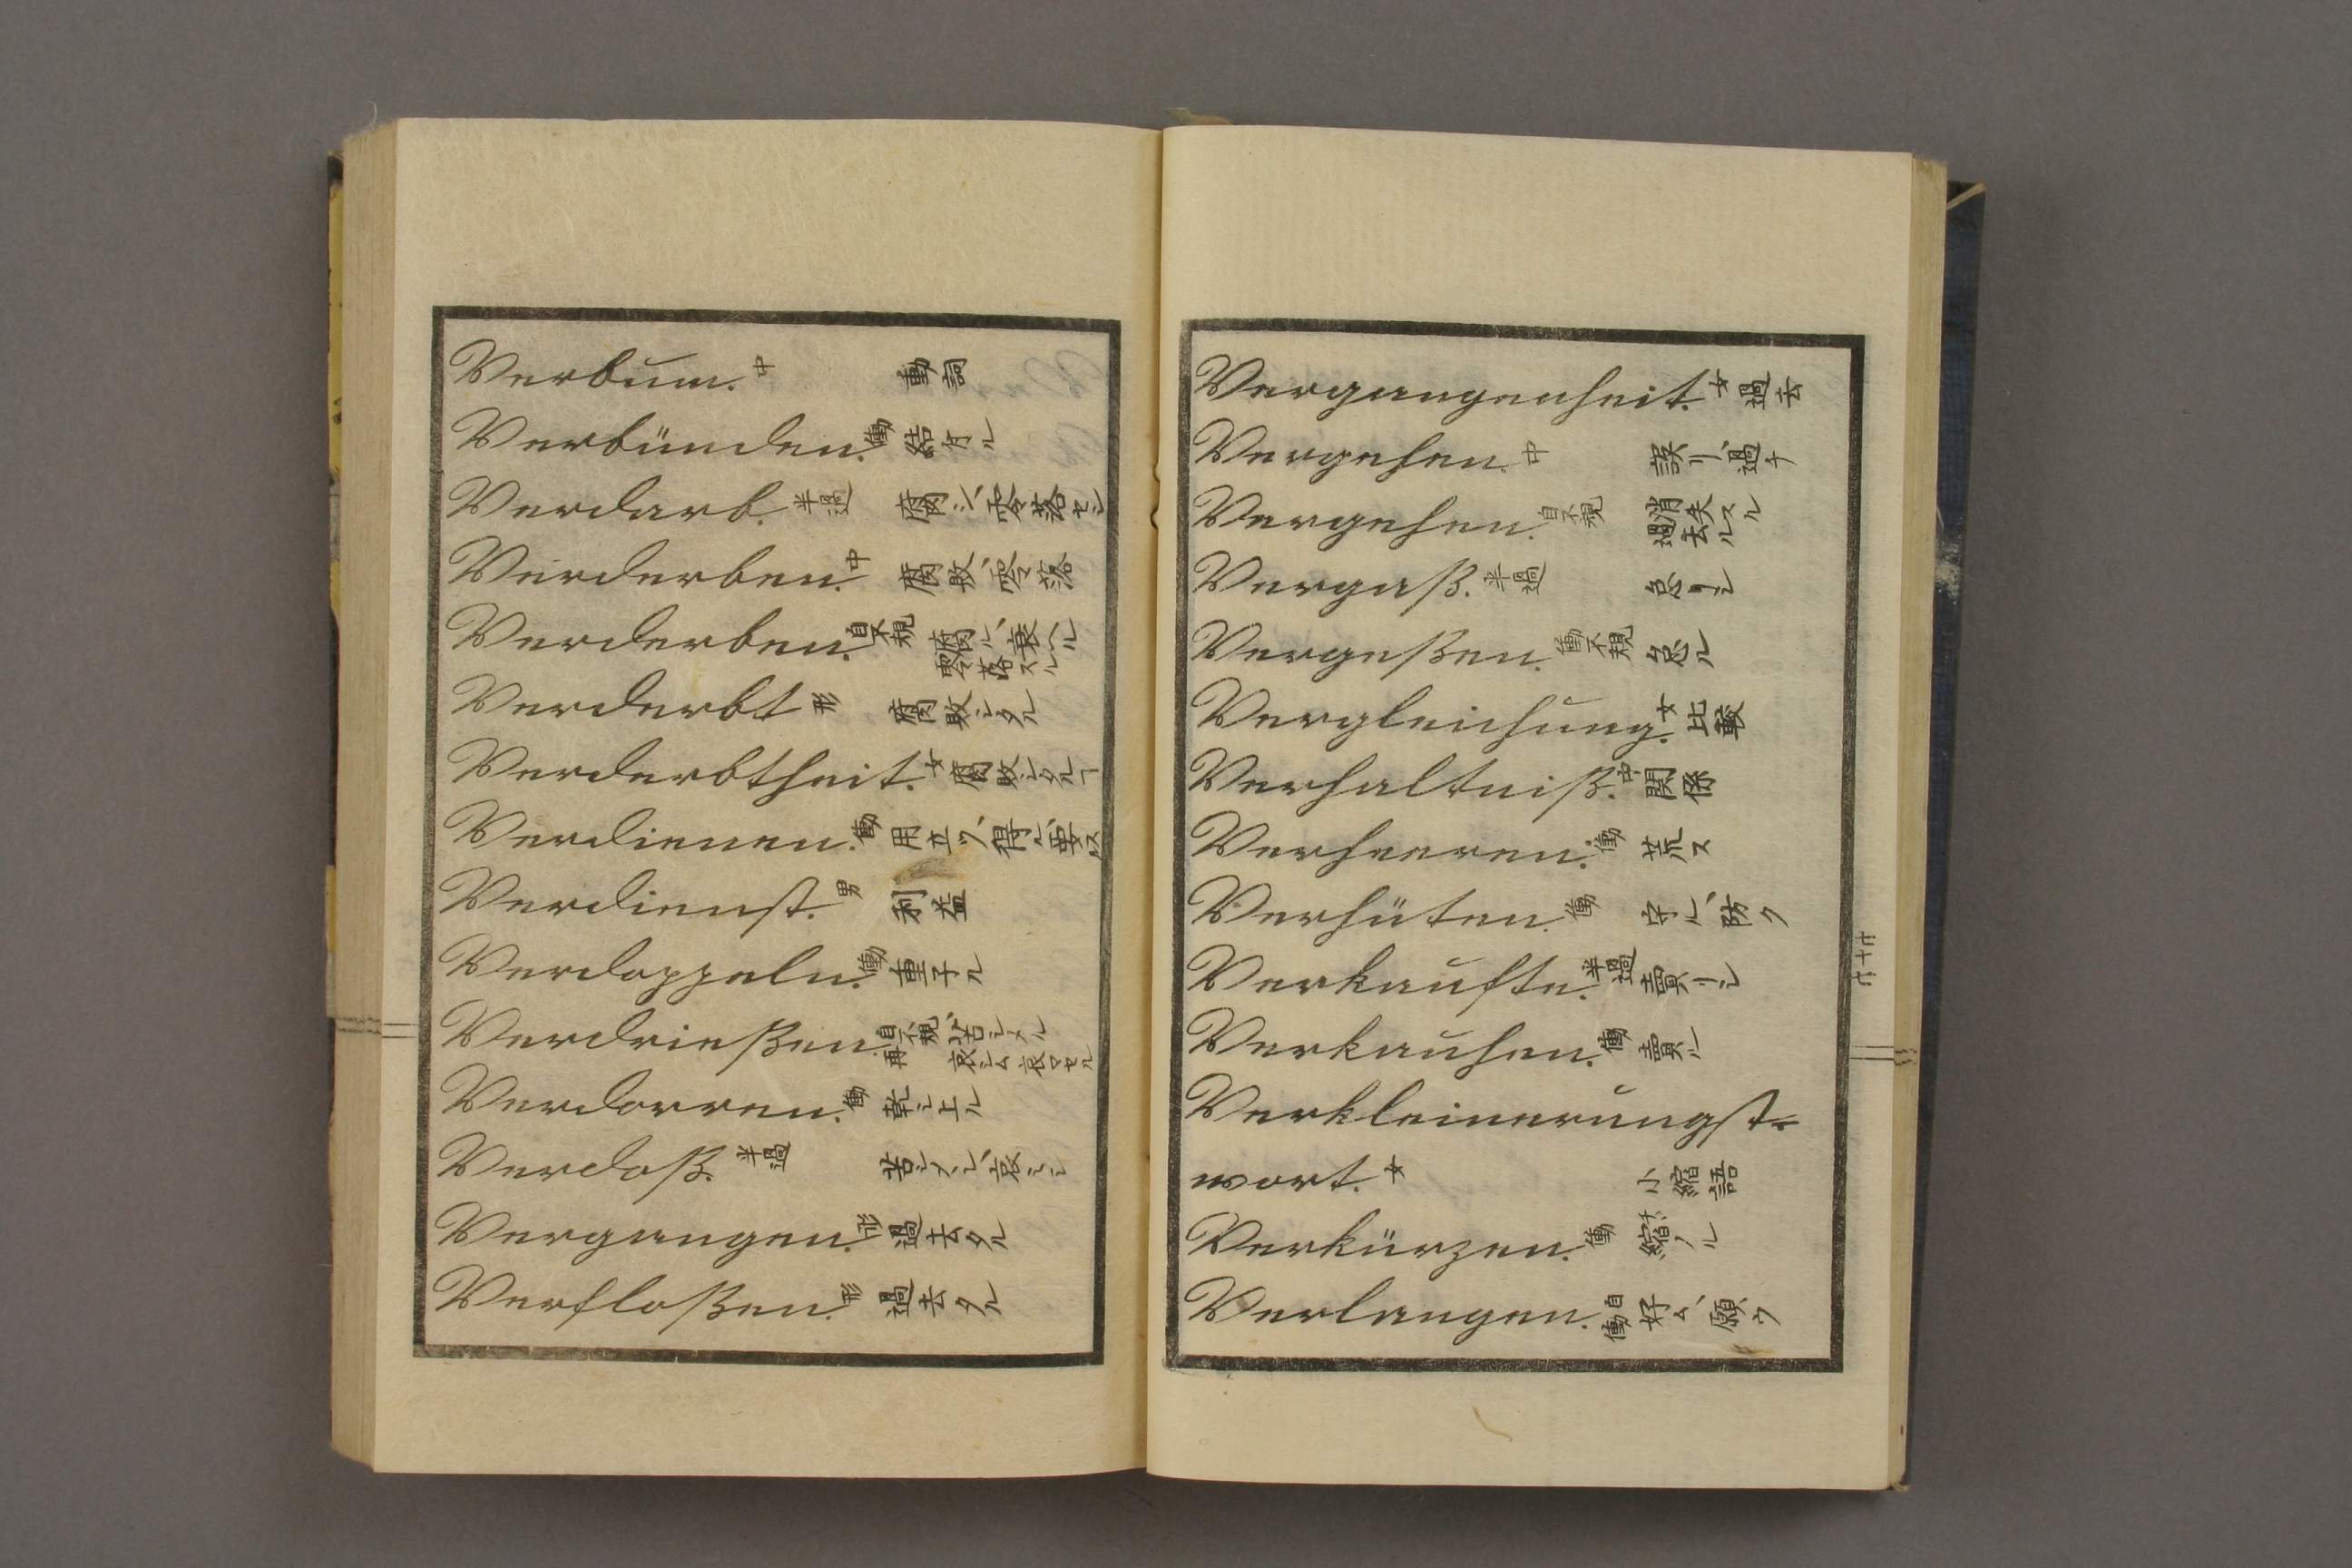 Verbum. 中 動詞
Verbünden. 働 結付ル
Verdarb. 半過 腐シ、零落セシ
Verderben. 中 腐敗、零落
Verderben. 自不規 腐ル、衰ヘル 零落スル
Verderbt 形 腐敗シタル
Verderbtheit. 女 腐敗シタルヿ
Verdienen. 働 用立ツ、得ル、要スル
Verdienst. 男 利益
Verdoppeln. 働 重子ル
Verdrießen. 自不規 再 苦シメル 哀シム 哀マセル
Verdorren. 働 乾シ上ル
Verdoß. 半過 苦シメシ、哀ミシ
Vergangen. 形 過去タル
Verfloßen. 形 過去タル
Vergangenheit. 女 過去
Vergehen. 中 誤リ、過チ
Vergehen. 自不規 消失スル 過去ル
Vergaß. 半過 怠リシ
Vergeßen. 働不規 怠ル
Vergleichung. 女 比較
Verhaltniß. 中 関係
Verheeren. 働 荒ス
Verhüten. 働 守ル、防ク
Verkaufte. 半過 賣リシ
Verkaufen. 働 賣ル
Verkleinerungst=
wort. 女 小縮語
Verkürzen. 働 縮メル
Verlangen. 自働 好ム、願ウ